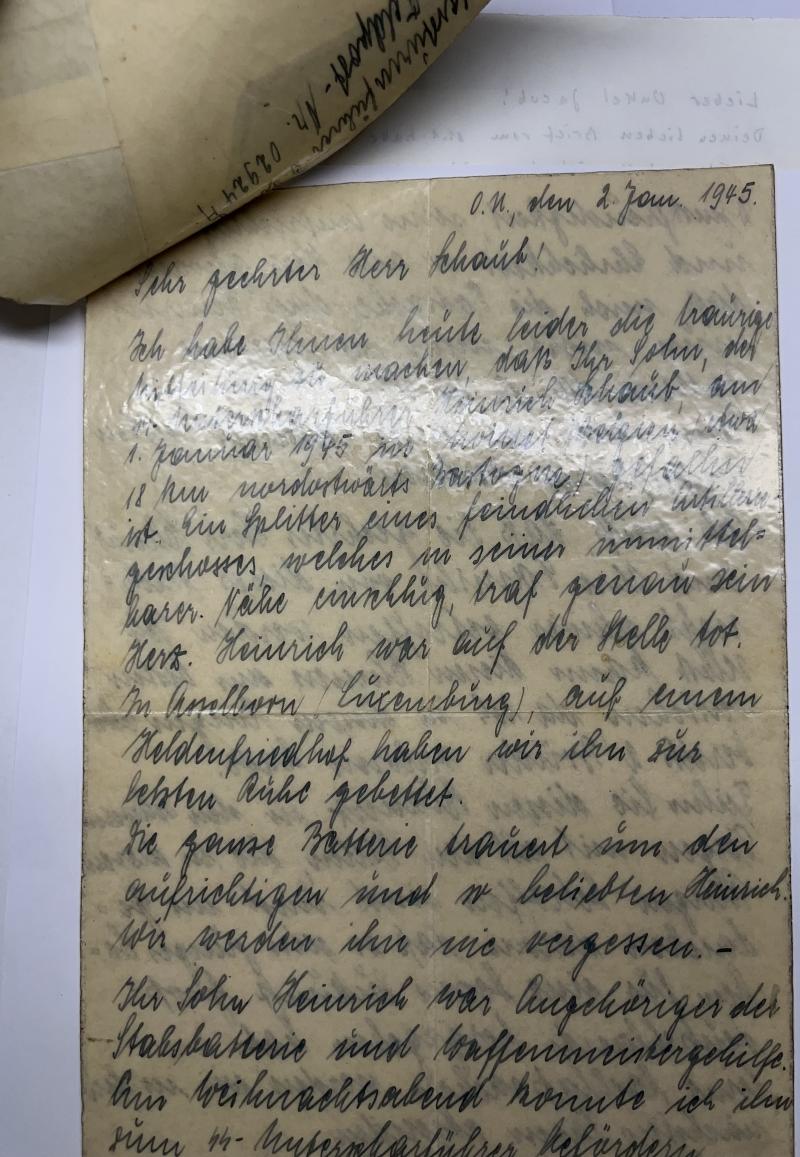 Feldpost-Nr. 02924 A
Lieber Onkel Jacob!
Deinen lieben Brief vom
O.U., den 2. Jan. 1945.
Sehr geehrter Herr Schaub!
Ich habe Ihnen heute leider die traurige
Mitteilung zu machen, daß Ihr Sohn, der
SS-Unterscharführer Heinrich Schaub, am
1. Januar 1945 vor (Belgien, etwa
18 km nordostwärts Bastogne) gefallen
ist. Ein Splitter eines feindlichen Artillerie-
geschosses, welches in seiner unmittel=
barer Nähe einschlug, traf genau sein
Herz. Heinrich war auf der Stelle tot.
In Asselborn (Luxemburg), auf einem
Heldenfriedhof haben wir ihn zur
letzten Ruhe gebettet.
Die ganze Batterie trauert um den
aufrichtigen und so beliebten Heinrich.
Wir werden ihn nie vergessen. –
Ihr Sohn Heinrich war Angehöriger der
Stabsbatterie und Waffenmeistergehilfe.
Am Weihnachtsabend konnte ich ihn
zum SS-Unterscharführer befördern